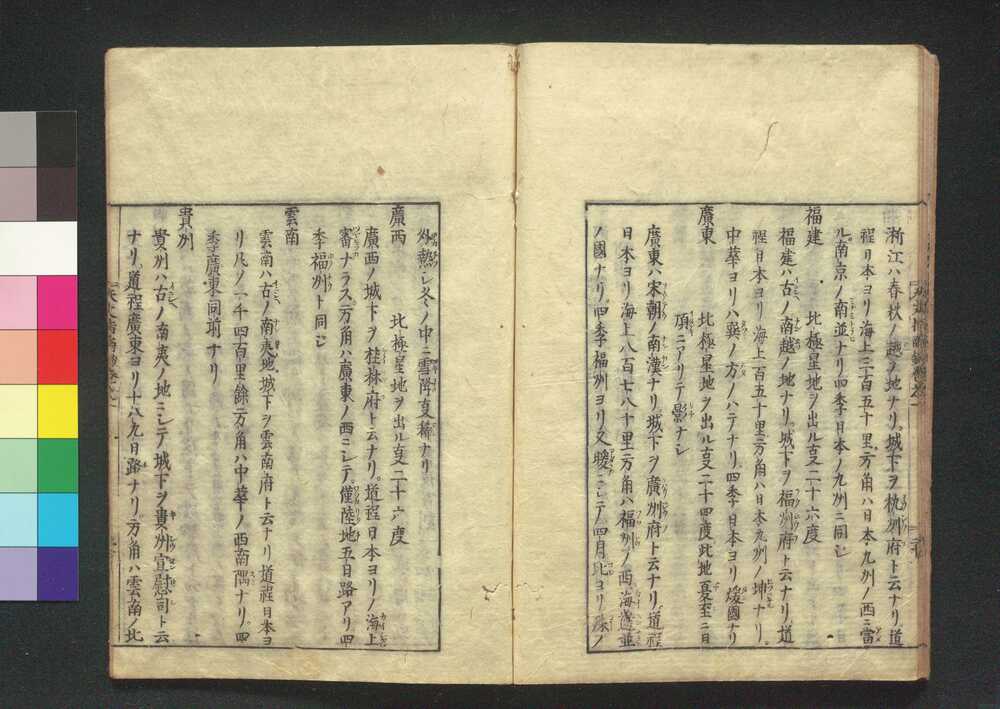 浙江ハ春秋ノ越ノ地ナリ城下ヲ杭州府ト云ナリ道
程日本ヨリ海上三百五十里方角ハ日本九州ノ西ニ當
ル南京ノ南並ナリ四季日本ノ九州ニ同シ
福建　北極星地ヲ出ル亥二十六度
福建ハ古ノ南越ノ地ナリ城下ヲ福州府ト云ナリ道
程日本ヨリ海上五百五十里方角ハ日本九州ノ坤ナリ
中華ヨリハ巽ノ方ノハテナリ四季日本ヨリ煖國ナリ
廣東　北極星地ヲ出ル亥二十四度此地夏至ニ日
頂ニアリテ影ナシ
廣東ハ宋朝ノ南漢ナリ城下ヲ廣州府ト云ナリ道程
日本ヨリ海上八百七八十里方角ハ福州ノ西海邊並
ノ國ナリ四季福州ヨリ又暖ニシテ四月比ヨリ殊ノ
外熱シ冬ノ中ニ雪降亥稀ナリ
廣西　北極星地ヲ出ル亥二十六度
廣西ノ城下ヲ桂林府ト云ナリ道程日本ヨリノ海上
審ナラス方角ハ廣東ノ西ニシテ僅陸地五日路アリ四
季福州ト同シ
雲南
雲南ハ古ノ南夷地城下ヲ雲南府ト云ナリ道程日本ヨ
リ凡ソ一千四百里餘方角ハ中華ノ西南隅ナリ四
季廣東同前ナリ
貴州
貴州ハ古ノ南夷ノ地ニシテ城下ヲ貴州宣慰司ト云
ナリ道程廣東ヨリ十八九日路ナリ方角ハ雲南ノ北